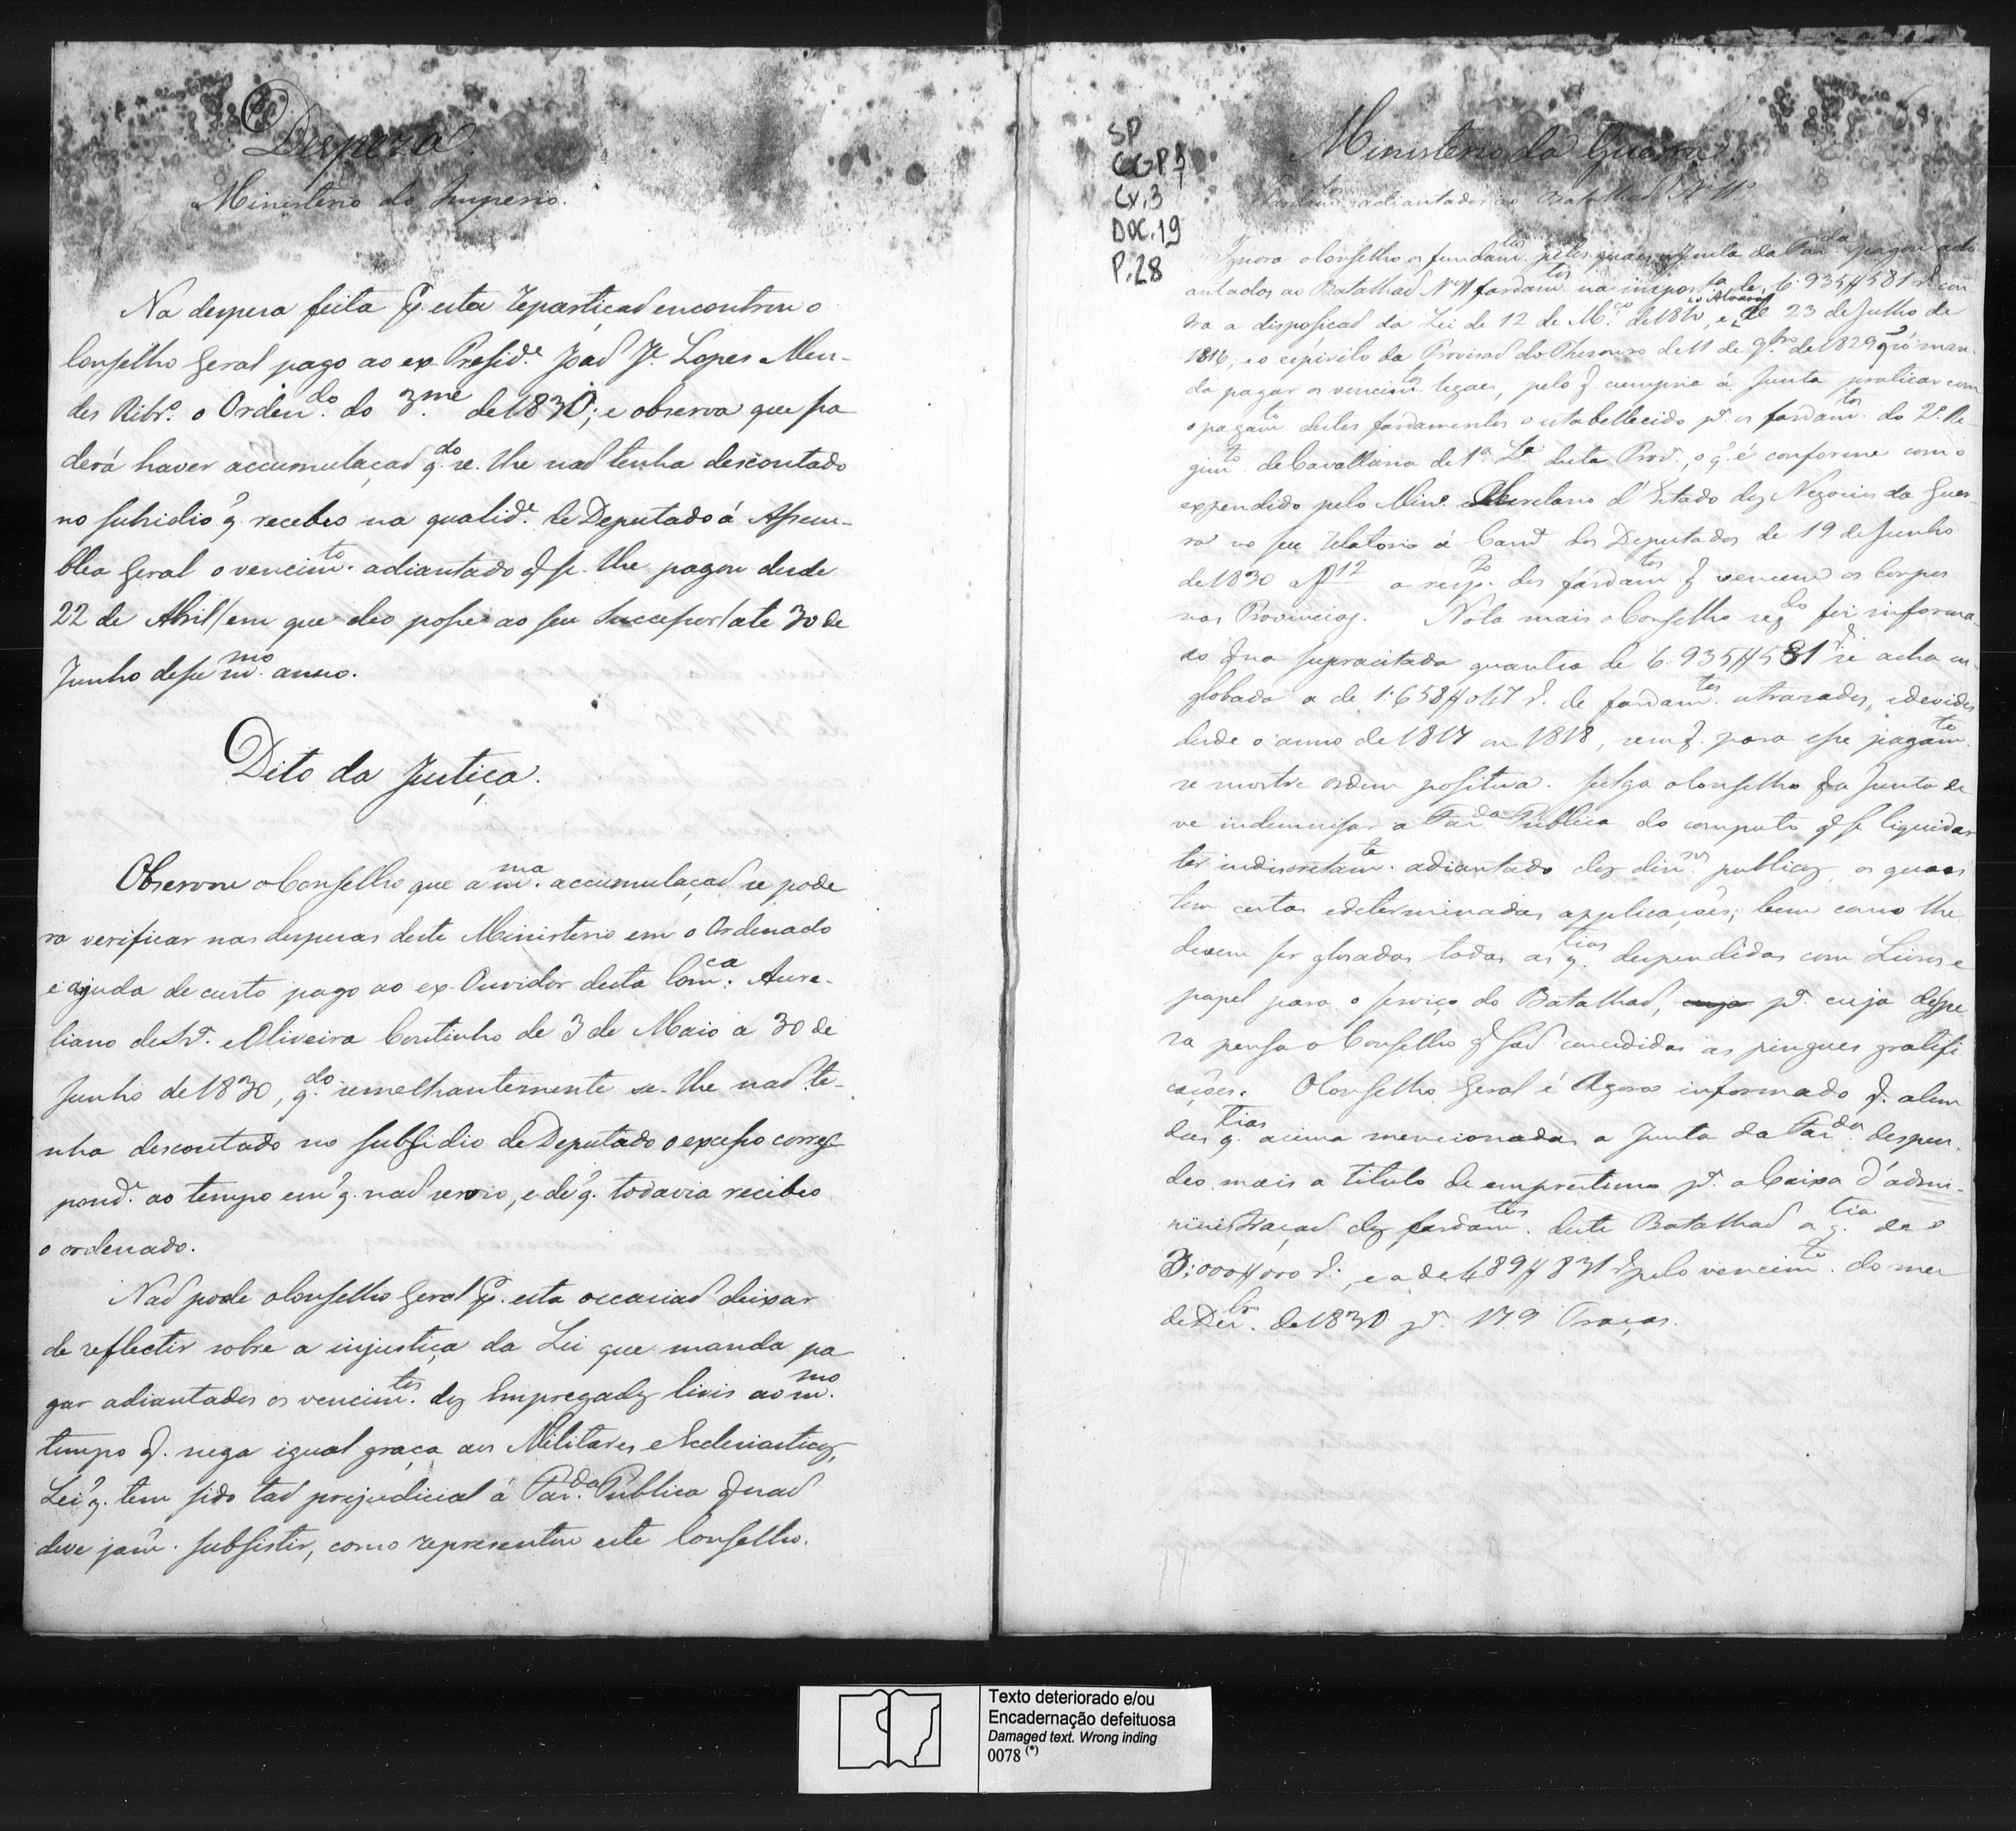 Despeza.
Ministerio do Imperio.
Na despeza feita p.r esta Repartiçaõ encontrou o
Conselho Geral pago ao ex-Presid.e Joaõ J.e Lopes Men-
des Ribr.o o Orden.do do 3.me de 1830; e observa que po
derá haver accumulaçaõ q.do se lhe naõ tenha descontado
no subsidio q̃ recebeo na qualid.e de Deputado á Assem-
blea Geral o vencim.to adiantado q̃ se lhe pagou desde
22 de Abril/em que deo posse ao seu Successor/ate 30 de
Junho desse m.mo anno.
Dito da Justiça.
Observou o Conselho que a m.ma accumulaçaõ se pode
ra verificar nas despezas deste Ministerio em o Ordenado
e ajuda de custo pago ao ex-Ouvidor desta Com.ca Aure-
liano de Sz.a e Oliveira Coutinho de 3 de Maio a 30 de
Junho de 1830, q.do semelhantemente se lhe naõ te-
nha descontado no subsidio de Deputado o excesso corres
pond.e ao tempo em q̃ naõ servio, e de q̃ todavia recebeo
o ordenado.
Naõ pode o Conselho Geral p.r esta occasiaõ deixar
de reflectir sobre a injustiça da Lei que manda pa
gar adiantados os vencim.tos dos Empregados Civis ao m.mo
tempo q̃ nega igual graça aos Militares e Ecclesiasticos,
Lei q̃ tem sido taõ prejudicial á Faz.da Publica q̃ naõ
deve jam. subsistir, como representou este Conselho.
SP
CGP1
Cx.3
DOC.19
P.28
Ministerio da Guerra.
Fardam.tos adiantados ao Batalhaõ Nº 11º
Ignora o Conselho os fundam.tos pelos quaes a Junta da Faz.da pagou adi
antados ao Batalhaõ Nº 11 fardam.tos na import.a de 6:935#581 r. con
tra a disposiçaõ da Lei de 12 de M.ço de 1810, e do Alvará de 23 de Julho de
1816; e o espirito da Provisaõ do Thesouro de 11 de 9.bro de 1829 q̃ só man-
da pagar os vencim.tos legaes, pelo q̃ cumpria á Junta praticar com
o pagam.to destes fardamentos o estabellecido p.a os fardam.tos do 2º Re-
gim.to de Cavallaria de 1ª L.a desta Prov.a, o q̃ é conforme com o
expendido pelo Min.o e Secretario d'Estado dos Negocios da Guer-
ra no seu Relatorio á Cam.a dos Deputados de 19 de Junho
de 1830 a f 12 a resp.to dos fardam.tos q̃ vencem os Corpos
nas Provincias. Nota mais o Conselho seg.do foi informa-
do q̃ na supracitada quantia de 6:935#581 r. se acha en-
globada a de 1:658#047 r. de fardam.tos atrazados, e devidos
desde o anno de 1817 ou 1818, sem q̃ para esse pagam.to
se mostre ordem positiva. Julga o Conselho q̃ a Junta de
ve indemnisar a Faz.da Publica do computo q̃ se liquidar
ter indiscretam.te adiantado dos dinr.os publicos, os quaes
tem certas e determinadas applicações; bem como lhe
devem ser glosadas todas as q.tias despendidas com Livros e
papel para o serviço do Batalhaõ, cuja p.a cuja despe
za pensa o Conselho q̃ saõ concedidas as pingues gratifi
cações. O Conselho Geral é Agora informado q̃ alem
das q.tias acima mencionadas a Junta da Faz.da despen-
deo mais a titulo de emprestimo p.a a Caixa d'admi-
nistraçaõ dos fardam.tos deste Batalhaõ a q.tia de
3:000#000 r., e a de 489#831 r. pelo vencim.to do mez
de Dez.bro de 1830 p.a 179 Praças.
Texto deteriorado e/ou
Encadernação defeituosa
Damaged text. Wrong inding
0078 (*)